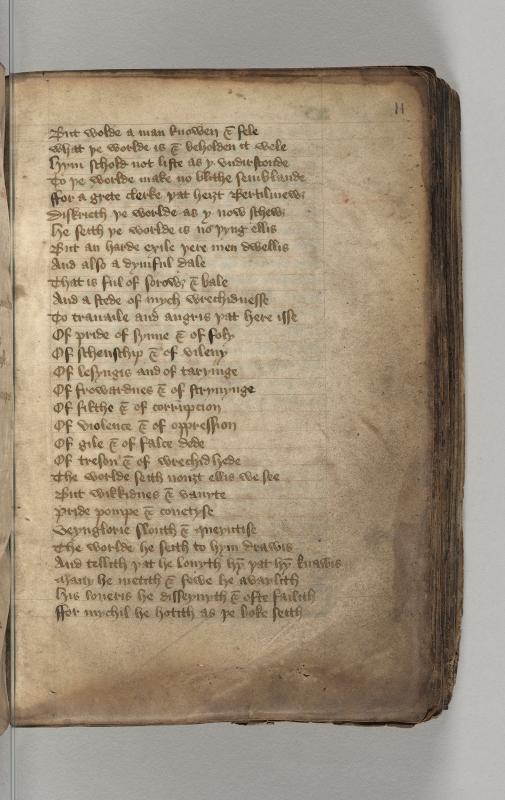 11
But wolde a man knowen & fele
What þe worlde is & beholden it wele
Hym schold not liste as y vndirstonde
To þe worlde make no blithe semblande
ffor a grete clerke þat heiȝt Bertilmew
Diskrieth þe worlde as y now schew
He seith þe worlde is no þyng ellis
But an harde exile þere men dwellis
And also a dymful dale
That is ful of sorow & bale
And a stede of mych wrechidnesse
To trauaile and angris þat here isse
Of pride of synne & of foly
Of schenschip & of vileny
Of lesyngis and of taryinge
Of frowardnes & of stryuynge
Of filthe & of corrupcion
Of violence & of oppression
Of gile & of falce dede
Of treson & of wrechidhede
The worlde seith nouȝt ellis we see
But wikkidnes & vanyte
Pride pompe & couetyse
Veynglorie slouth & queyntise
The worlde he seith to hym drawis
And tellith þat he louyth hȳ þat hȳ knawis
Many he metith & fewe he avaylith
His loueris he disseyuyth & ofte failith
ffor mychil he hotith as þe boke seith